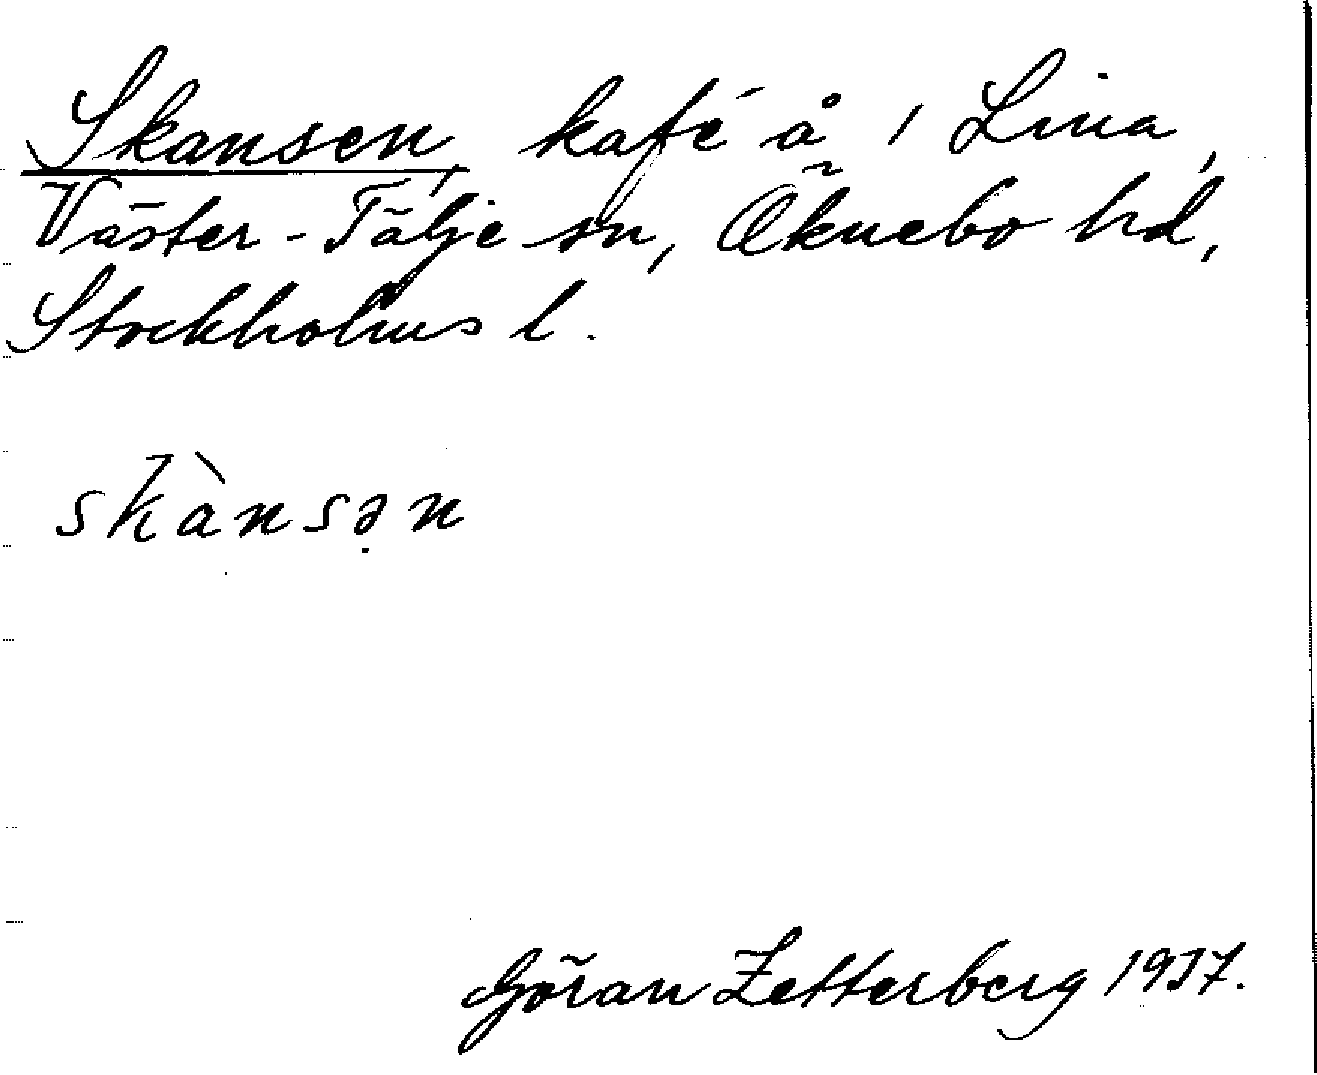 Skansen, kafé å 1 Lina,
Väster-Tälje sn, Öknebo hd,
Stockholms l.
skànsə̣n
Göran Zetterberg 1937.